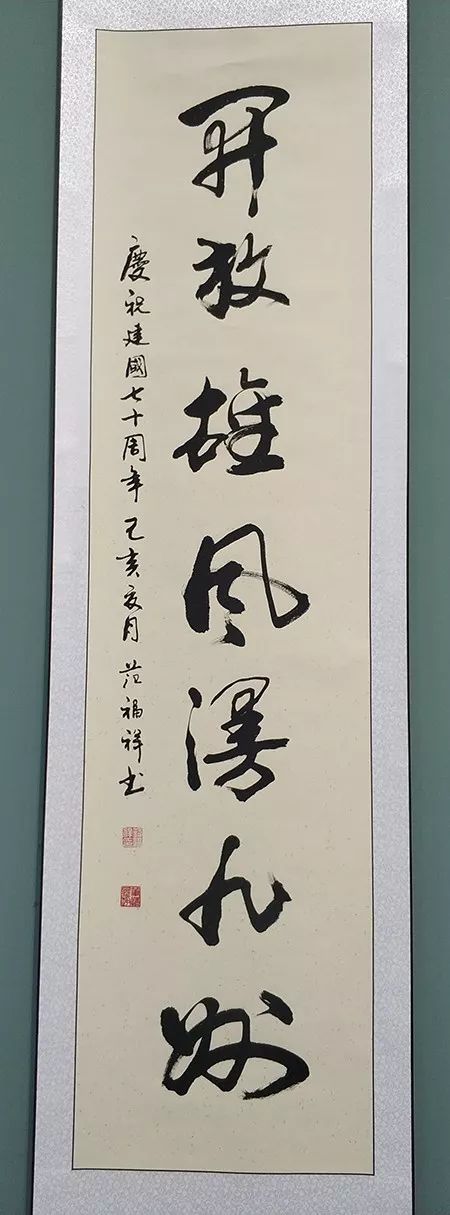 開放雄風漫九州
慶祝建國七十周年 己亥夏月 范福祥书